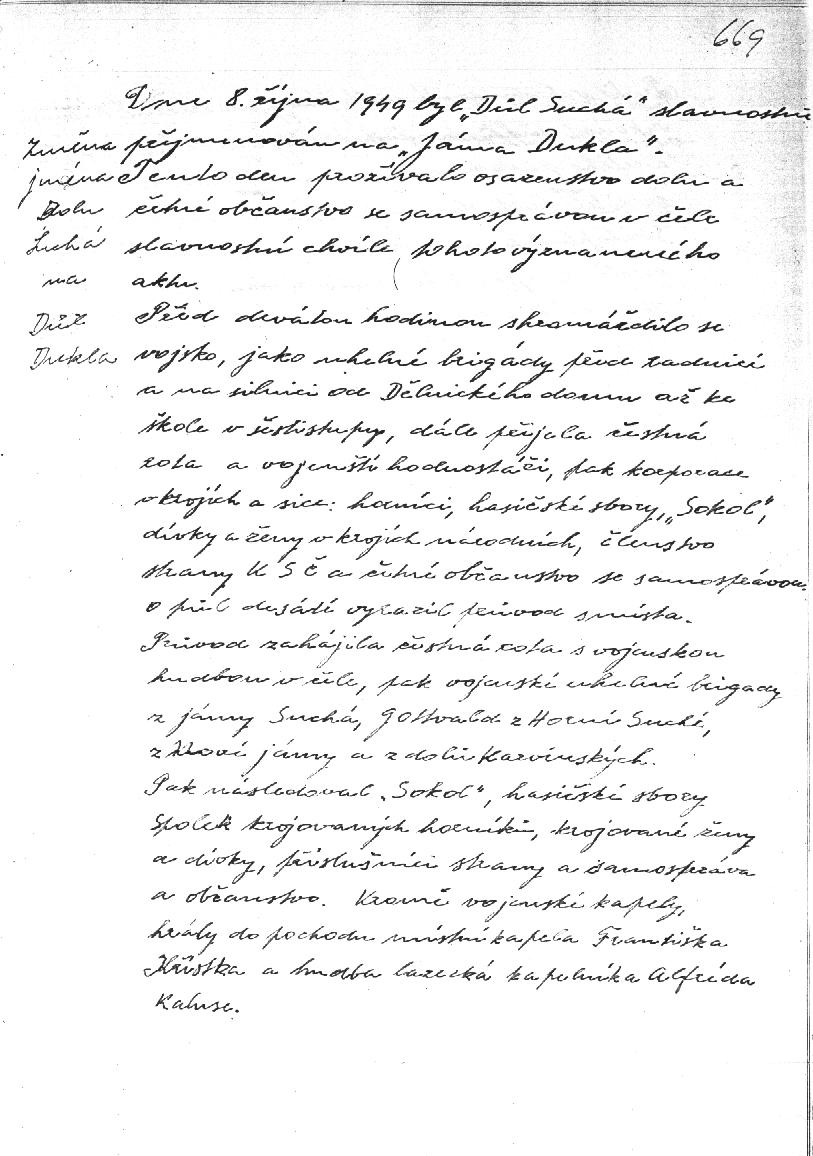 669
Dne 8. října 1949 byl „Důl Suchá" slavnostně
Změna
jména
Dolu
Suchá
na
Důl
Dukla
přejmenován na „Jáma Dukla".
Tento den prožívalo osazenstvo dolu a
četné občanstvo se samosprávou v čele
slavnostní chvíle tohoto významného
aktu.
Před devátou hodinou shromáždilo se
vojsko, jako uhelné brigády před radnicí
a na silnici od Dělnického domu až ke
škole v šestistupy, dále přijela čestná
rota a vojenští hodnostáři, pak korporace
v krojích a sice: horníci, hasičské sbory, „Sokol",
dívky a ženy v krojích národních, členstvo
strany KSČ a četné občanstvo se samosprávou.
O půl desáté vyrazil průvod s místa.
Průvod zahájila čestná rota s vojenskou
hudbou v čele, pak vojenské uhelné brigady
z jámy Suchá, Gottwald z Horní Suché,
z jámy a z dolů Karvinských.
Pak následoval „Sokol", hasičské sbory
Spolek krojovaných horníků, krojované ženy
a dívky, příslušníci strany a samospráva
a občanstvo. Kromě vojenské kapely,
hrály do pochodu místní kapela Františka
Křístka a hudba lazecká kapelníka Alfréda
Kaluse.